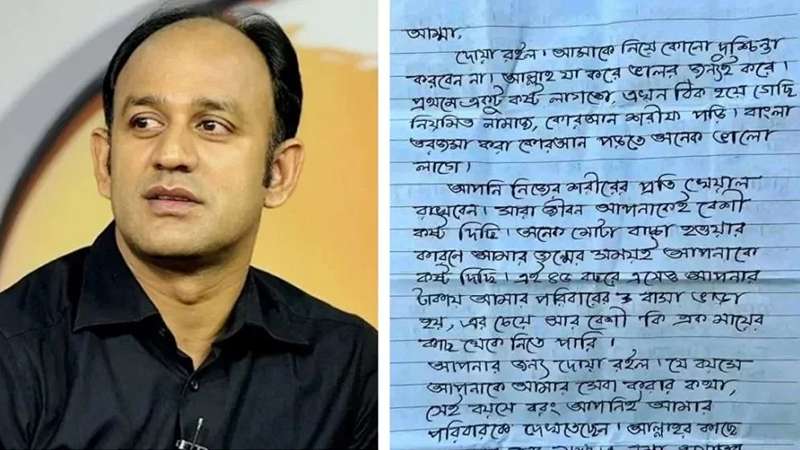 আম্মা,
দোয়া রইল। আমাকে নিয়ে কোনো দুশ্চিন্তা
করবেন না। আল্লাহ যা করে ভালোর জন্যই করে।
প্রথমে একটু কষ্ট লাগতো, এখন ঠিক হয়ে গেছি
নিয়মিত নামাজ, কোরআন শরীফ পড়ি। বাংলা
তরজমা করা কোরআন পড়তে অনেক ভালো
লাগে।
আপনি নিজের শরীরের প্রতি খেয়াল
রাখবেন। সারা জীবন আপনাকেই বেশী
কষ্ট দিছি। অনেক মোটা বাচ্চা হওয়ার
কারনে আমার জন্মের সময়ই আপনাকে
কষ্ট দিছি। এই ৪৫ বছরে এসেও আপনার
টাকায় আমার পরিবারের ও বাসা ভাড়া
হয়, এর চেয়ে আর বেশী কি এক মায়ের
কাছ থেকে নিতে পারি।
আপনার জন্য দোয়া রইল। যে বয়সে
আপনাকে আমার সেবা করার কথা,
সেই বয়সে বরং আপনিই আমার
পরিবারকে দেখতেছেন। আল্লাহর কাছে